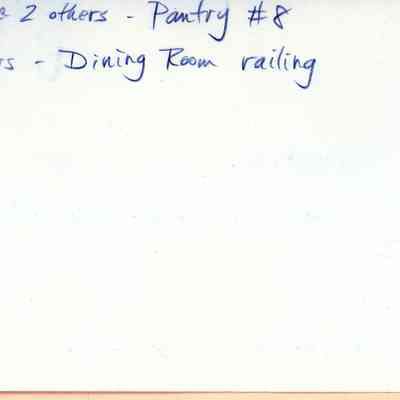 2 others - Pantry #8
- Dining Room railing